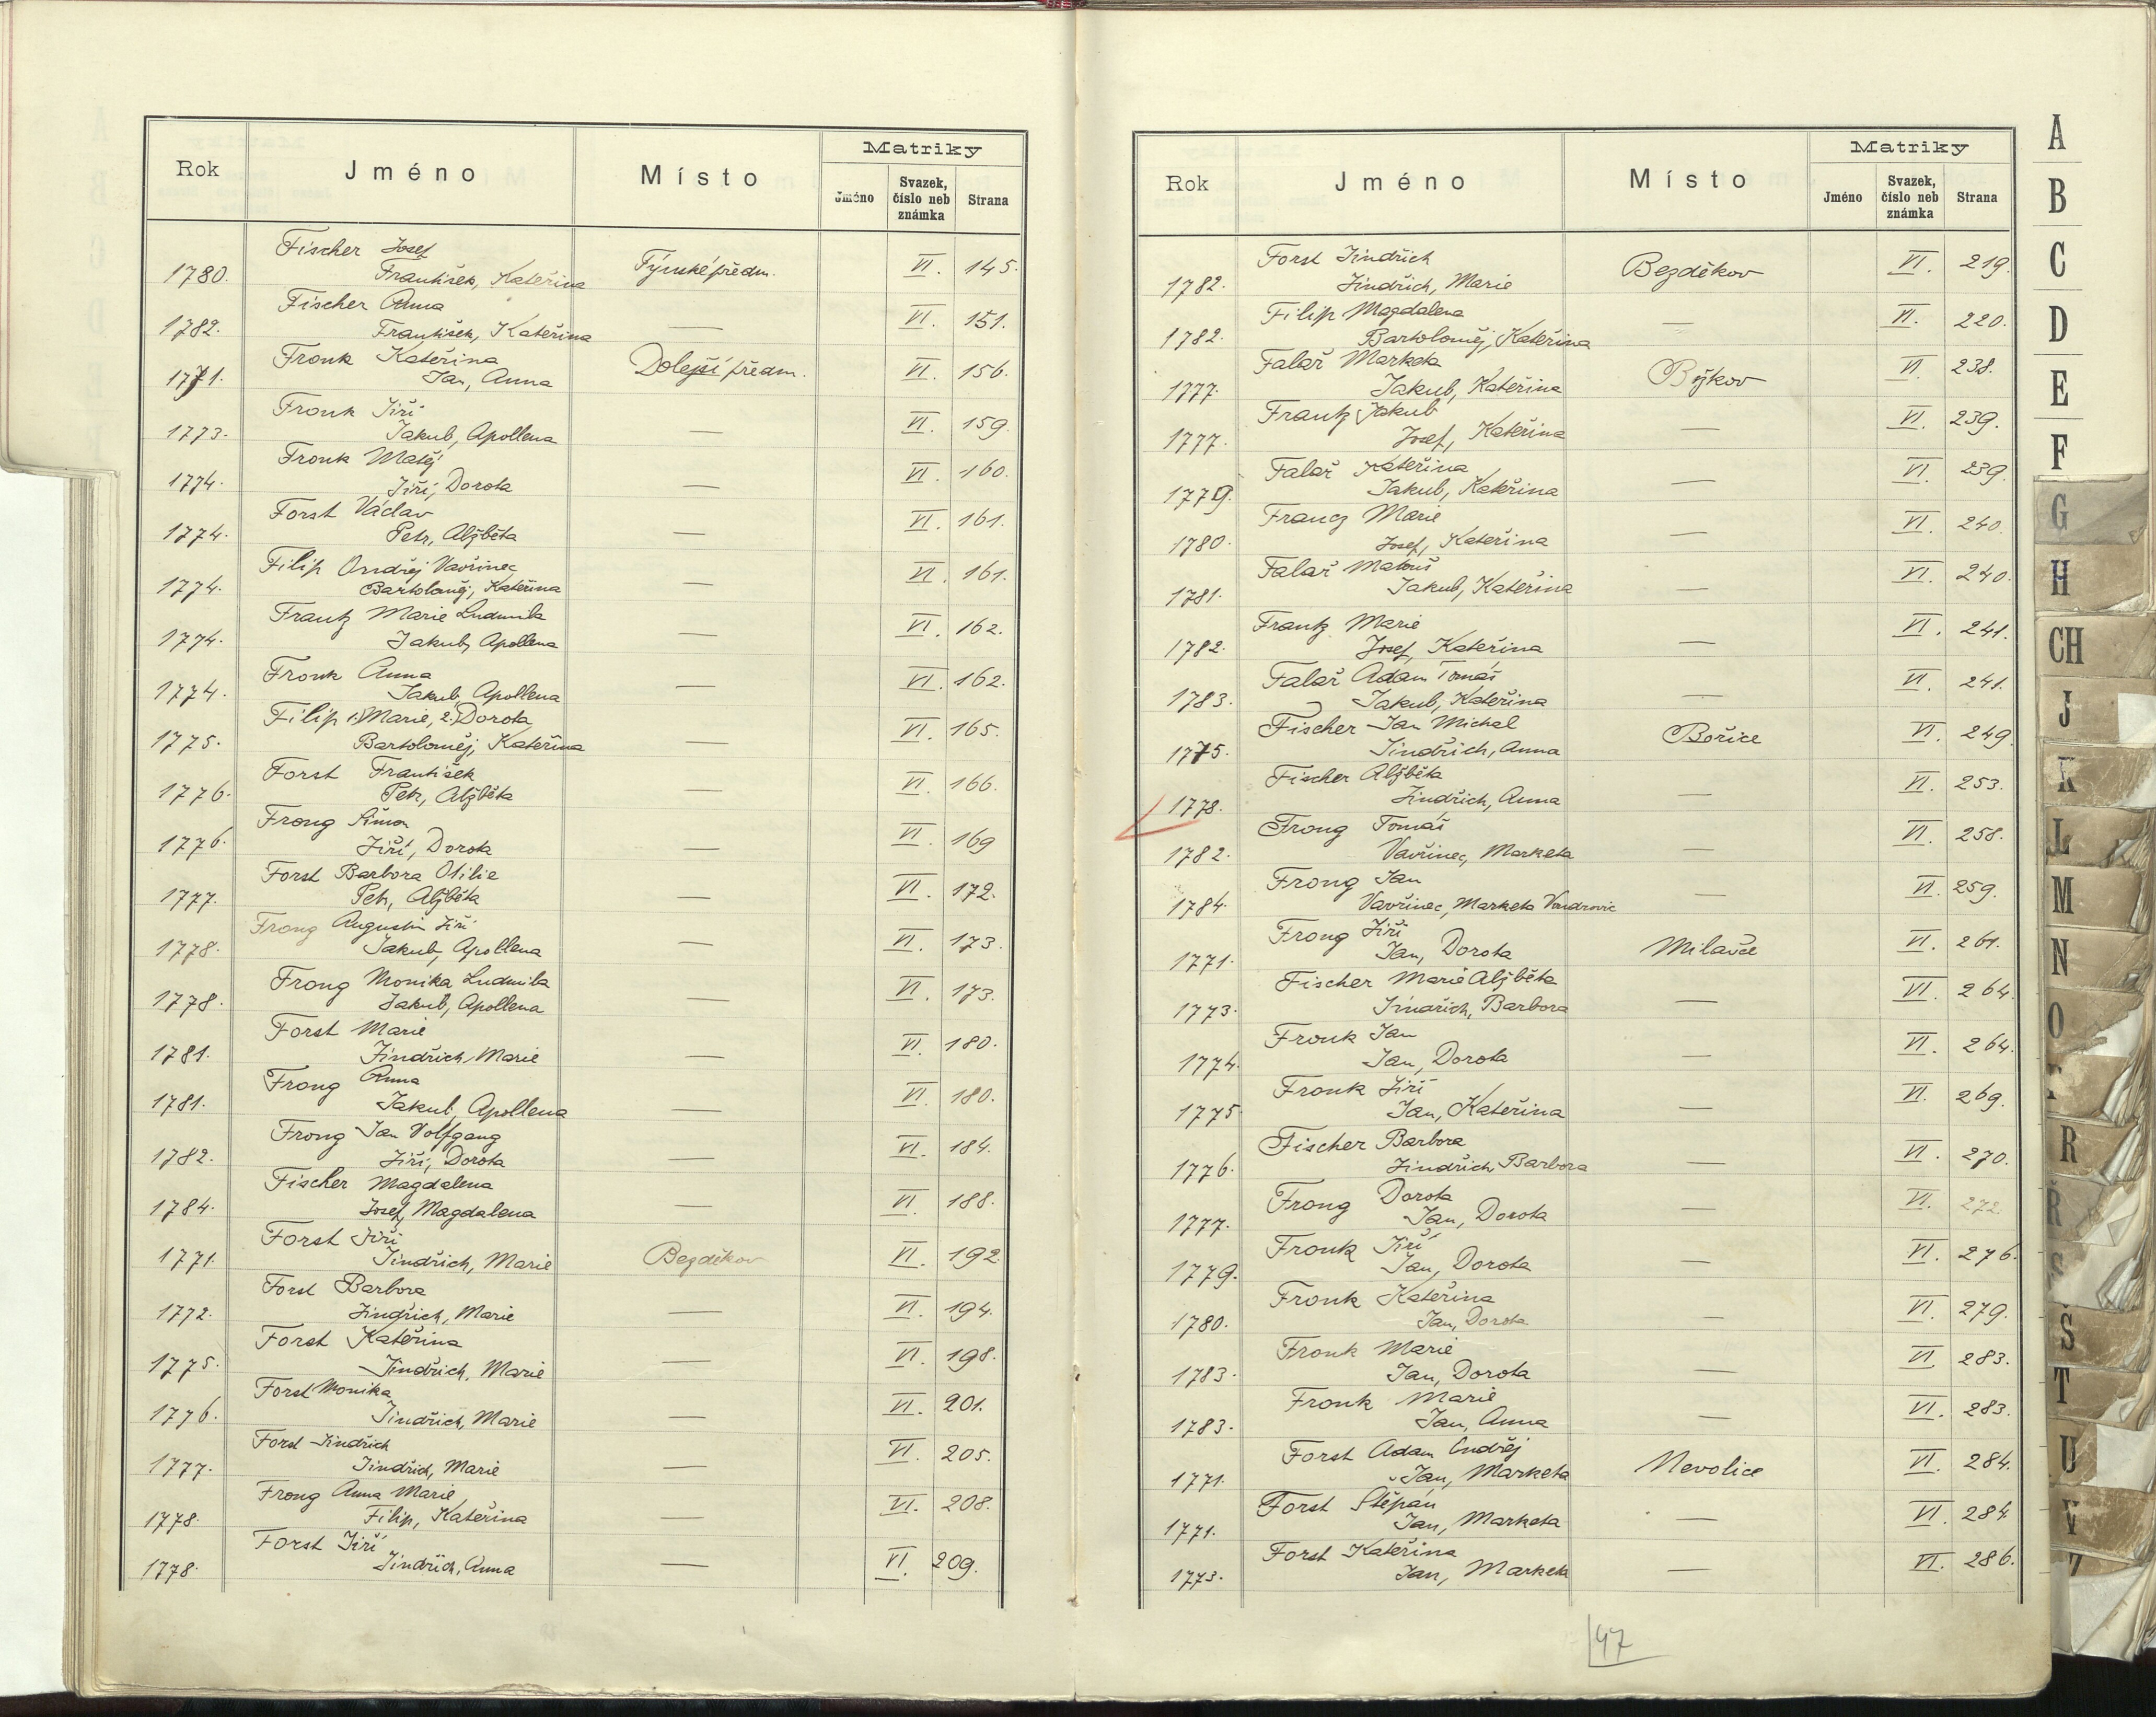 Rok Jméno Místo Matriky
Jméno Svazek, číslo neb známka Strana
Fischer Josef
1780. František, Kateřina Týnské předm. VI. 145.
Fischer Anna
1782. František, Kateřina — VI. 151.
Fronk Kateřina
1771. Jan, Anna Dolejší předm. VI. 156.
Fronk Jiří
1773. Jakub, Apollena — VI. 159.
Fronk Matěj
1774. Jiří, Dorota — VI. 160.
Forst Václav
1774. Petr, Alžběta — VI. 161.
Filip Ondřej Vavřinec
1774. Bartoloměj, Kateřina — VI. 161.
Frantz Marie Ludmila
1774. Jakub, Apollena — VI. 162.
Fronk Anna
1774. Jakub, Apollena — VI. 162.
Filip 1.) Marie, 2.) Dorota
1775. Bartoloměj, Kateřina — VI. 165.
Forst František
1776. Petr, Alžběta — VI. 166.
Frong Šimon
1776. Jiří, Dorota — VI. 169
Forst Barbora Otilie
1777. Petr, Alžběta — VI. 172.
Frong Augustin Jiří
1778. Jakub, Apollena — VI. 173.
Frong Monika Ludmila
1778. Jakub, Apollena — VI. 173.
Forst Marie
1781. Jindřich, Marie — VI. 180.
Frong Anna
1781. Jakub, Apollena — VI. 180.
Frong Jan Volfgang
1782. Jiří, Dorota — VI. 184.
Fischer Magdalena
1784. Josef, Magdalena — VI. 188.
Forst Jiří
1771. Jindřich, Marie Bezděkov VI. 192.
Forst Barbora
1772. Jindřich, Marie — VI. 194.
Forst Kateřina
1775. Jindřich, Marie — VI. 198.
Forst Monika
1776. Jindřich, Marie — VI. 201.
Forst Jindřich
1777. Jindřich, Marie — VI. 205.
Frong Anna Marie
1778. Filip, Kateřina — VI. 208.
Forst Jiří
1778. Jindřich, Anna — VI. 209.
Rok Jméno Místo Matriky
Jméno Svazek, číslo neb známka Strana
Forst Jindřich
1782. Jindřich, Marie Bezděkov VI. 219.
Filip Magdalena
1782. Bartoloměj, Kateřina — VI. 220.
Falař Marketa
1777. Jakub, Kateřina Božkov VI. 238.
Frantz Jakub
1777. Josef, Kateřina — VI. 239.
Falař Kateřina
1779. Jakub, Kateřina — VI. 239.
Francz Marie
1780. Josef, Kateřina — VI. 240.
Falař Matouš
1781. Jakub, Kateřina — VI. 240.
Frantz Marie
1782. Josef, Kateřina — VI. 241.
Falař Adam Tomáš
1783. Jakub, Kateřina — VI. 241.
Fischer Jan Michal
1775. Jindřich, Anna Bořice VI. 249.
Fischer Alžběta
1778. Jindřich, Anna — VI. 253.
Frong Tomáš
1782. Vavřinec, Marketa — VI. 258.
Frong Jan
1784. Vavřinec, Marketa — VI. 259.
Frong Jiří
1771. Jan, Dorota Milavče VI. 261.
Fischer Marie Alžběta
1773. Jindřich, Barbora — VI. 264.
Fronk Jan
1774. Jan, Dorota — VI. 264.
Fronk Jiří
1775. Jan, Kateřina — VI. 269.
Fischer Barbora
1776. Jindřich Barbora — VI. 270.
Frong Dorota
1777. Jan, Dorota — VI. 272.
Fronk Jiří
1779. Jan, Dorota — VI. 276.
Fronk Kateřina
1780. Jan, Dorota — VI. 279.
Fronk Marie
1783. Jan, Dorota — VI. 283.
Fronk Marie
1783. Jan, Anna — VI. 283.
Forst Adam Ondřej
1771. Jan, Marketa Nevolice VI. 284.
Forst Štěpán
1771. Jan, Marketa — VI. 284.
Forst Kateřina
1773. Jan, Marketa — VI. 286.
47
A
B
C
D
E
F
G
H
CH
J
K
L
M
N
O
R
Ř
S
Š
T
U
V